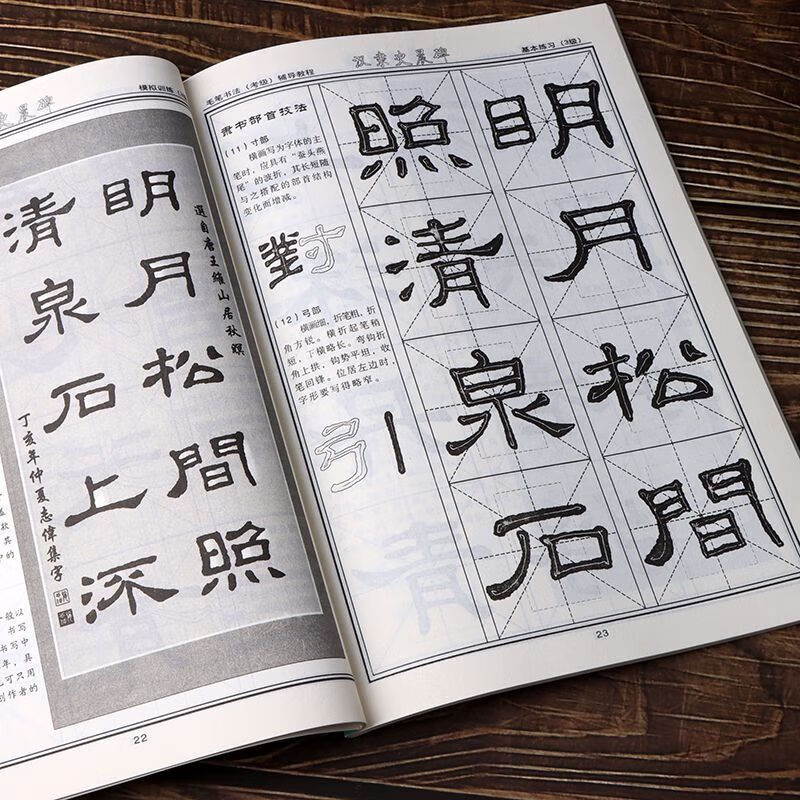 史晨碑
模拟训练
明月松間照
清泉石上流
選自唐王維山居秋暝
丁亥年仲夏志偉集字
般以
书写
书写中
年，具
可只用
创作者的
22
毛笔书法（考级）辅导教程
汉隶史晨碑
基本练习（3级）
隶书部首技法
（11）寸部
横画写为字体的主
笔时，应具有“蚕头燕
尾”的波折，其长短随
与之搭配的部首结构
变化而增减。
對
（12）弓部
横画细，折笔粗，折
角方锐。横折起笔稍
短，下横略长。弯钩折
角上拱，钩势平坦，收
笔回锋。位居左边时，
字形要写得略窄。
引
明月松間
照清泉石
23